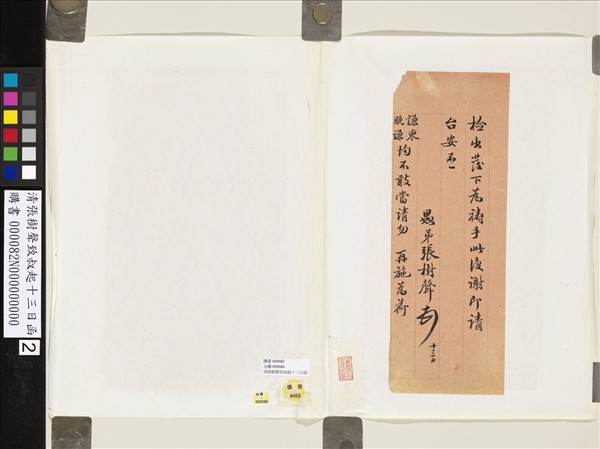 檢出蕆下為禱手此復謝即請
台安不一
愚弟張樹聲頓
十三日
謙柬
晚謙
均不敢當請勿 再施為荷
清張樹聲致叔起十三日函
購書 000082N000000000
2
購書 000082